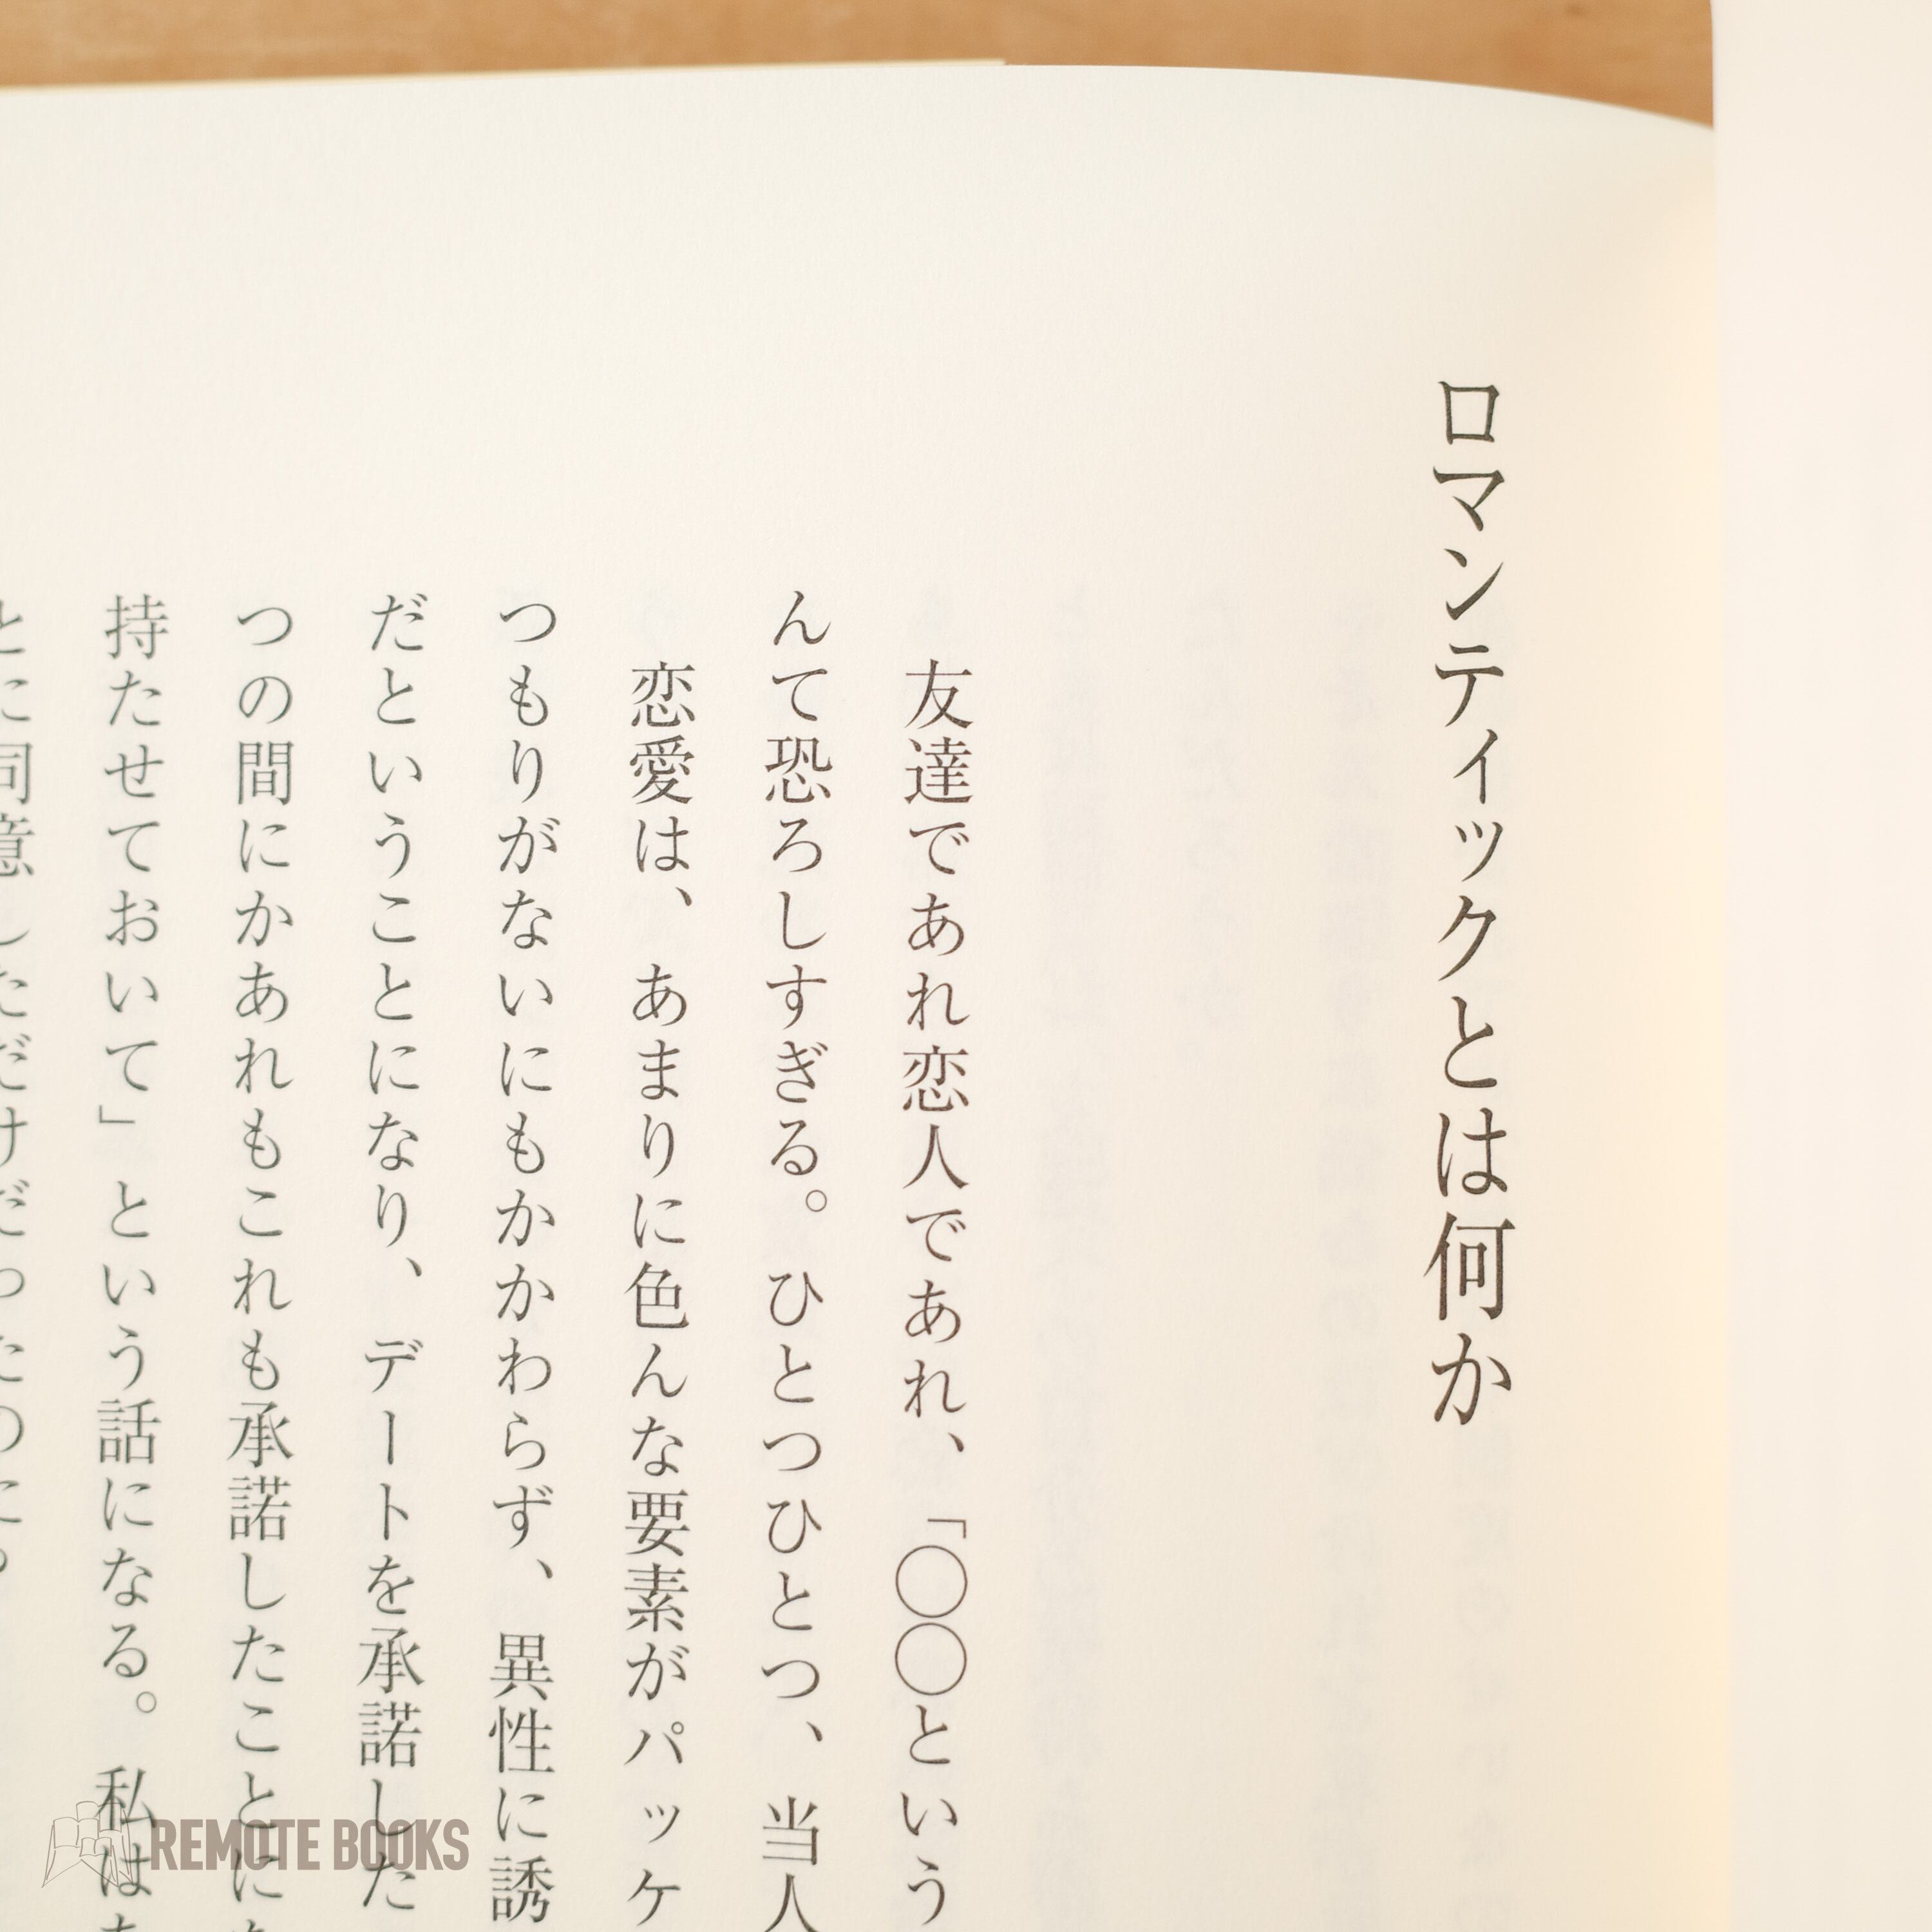 ロマンティックとは何か
友達であれ恋人であれ、「〇〇という
んて恐ろしすぎる。ひとつひとつ、当人
恋愛は、あまりに色んな要素がパッケ
つもりがないにもかかわらず、異性に誘
だということになり、デートを承諾した
つの間にかあれもこれも承諾したことに
持たせておいて」という話になる。私は
とに同意しただけだったのに。
REMOTE BOOKS